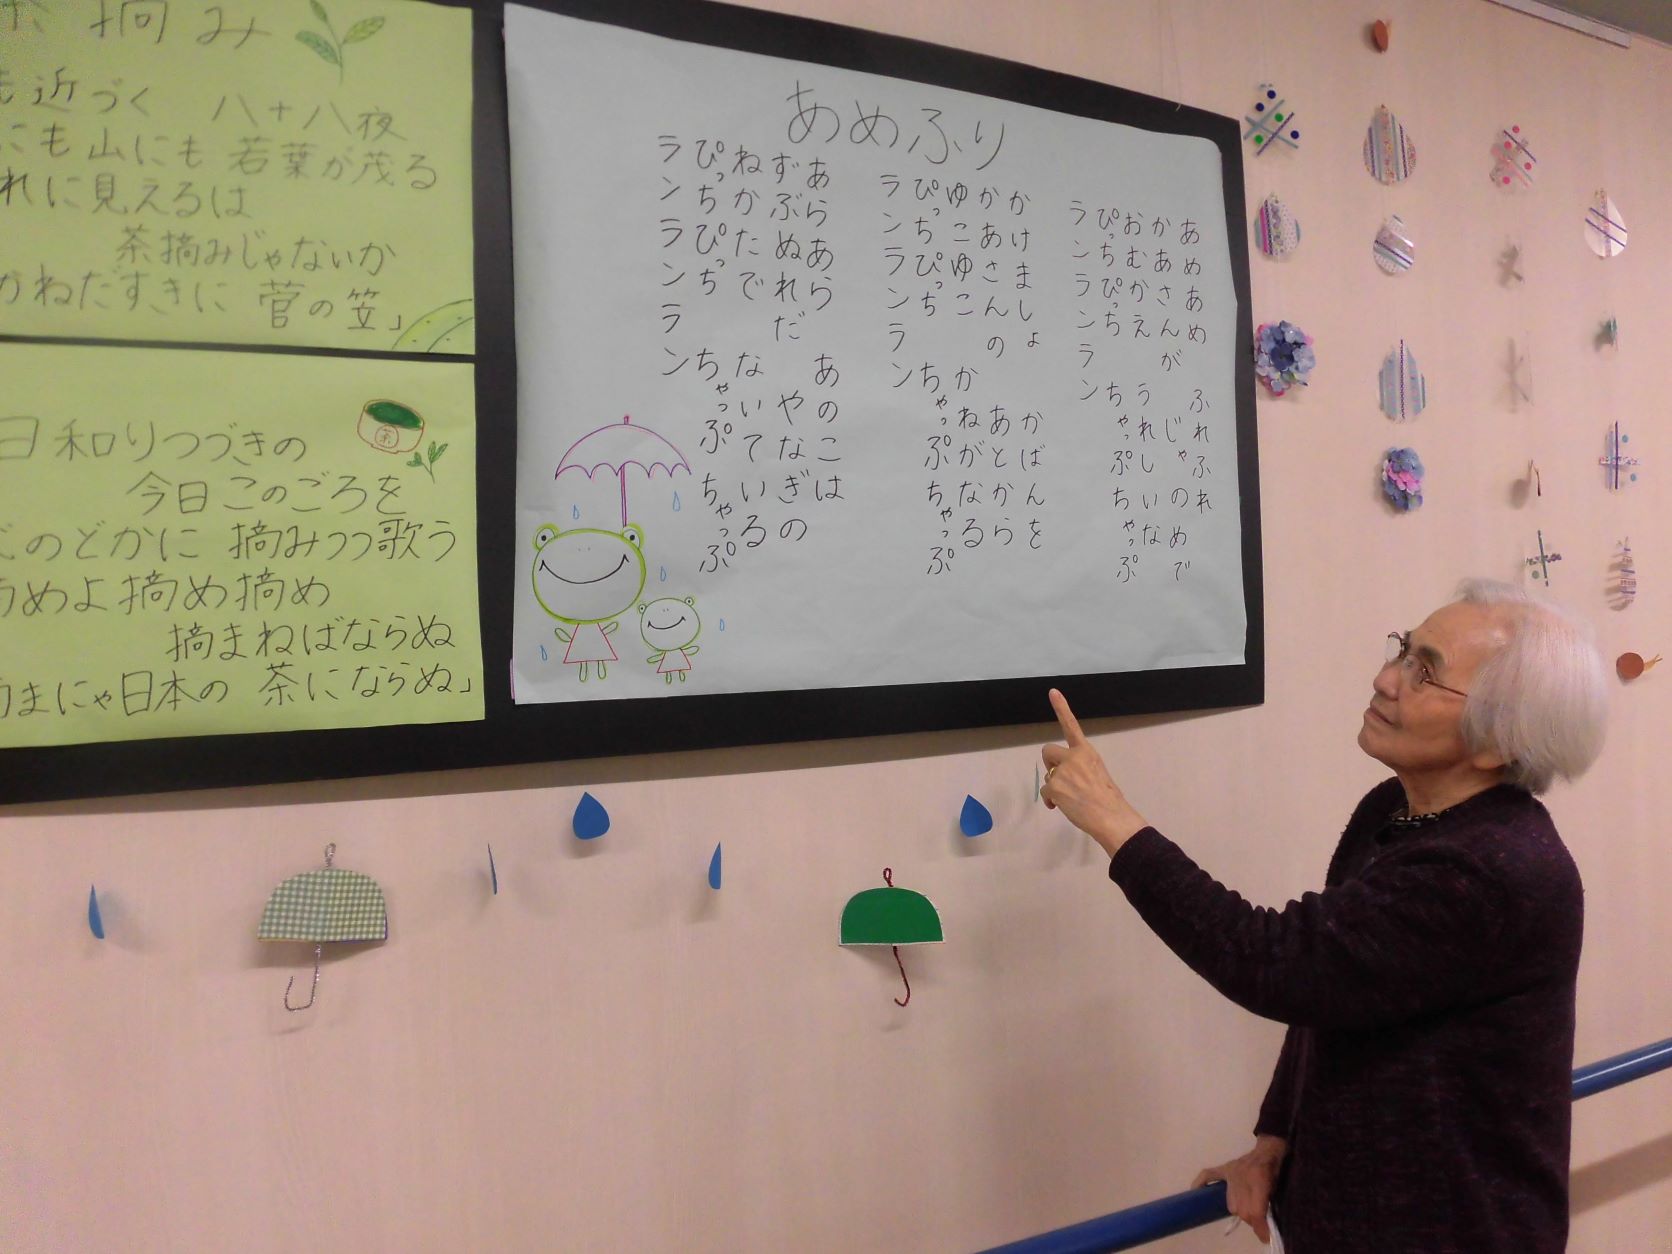 摘み
も近づく 八十八夜
にも山にも 若葉が茂る
れに見えるは
茶摘みじゃないか
かねだすきに 菅の笠」
日和りつづきの
茶
今日このごろを
のどかに 摘みつつ歌う
摘めよ摘め摘め
摘まねばならぬ
摘まにゃ日本の 茶にならぬ」
あめふり
あめあめ ふれふれ
かあさんが じゃのめで
おむかえ うれしいな
ぴっちぴっち ちゃっぷちゃっぷ
ランランラン
かけましょ かばんを
かあさんの あとから
ゆこゆこ かねがなる
ぴっちぴっち ちゃっぷちゃっぷ
ランランラン
あらあら あのこは
ずぶぬれだ やなぎの
ねかたで ないている
ぴっちぴっち ちゃっぷちゃっぷ
ランランラン